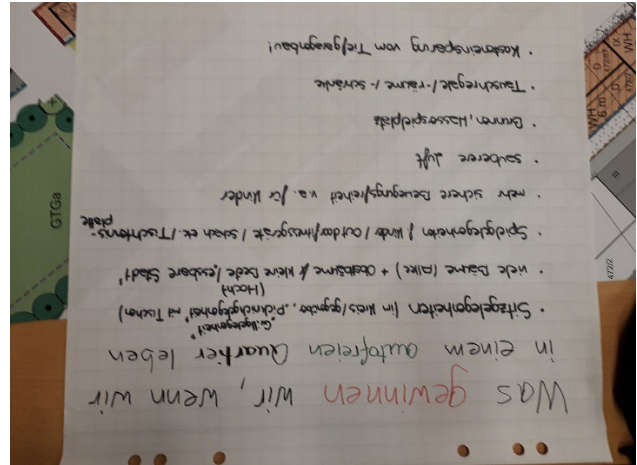 Was gewinnen wir, wenn wir
in einem autofreien Quartier leben
"Grillgelegenheit"
• Sitzgelegenheiten (in Kreis/gegenüber, "Picknickgelegenheit" mit Tischen)
(Hoch)
• viele Bäume (Allee) + Obstbäume / kleine Beete / "essbare Stadt"
• Spielgelegenheiten f. Kinder / Outdoorfitnessgeräte / Schach etc. / Tischtennis-
platte
• mehr sichere Bewegungsfreiheit v.a. für Kinder
• sauberere Luft
• Brunnen, Wasserspielplatz
• Tauschregale /-räume /-schränke
• Kosteneinsparung vom Tiefgaragenbau!
GTGa
472/2
WH
6 m
D
472/3
WH
D
IX
472/7
III